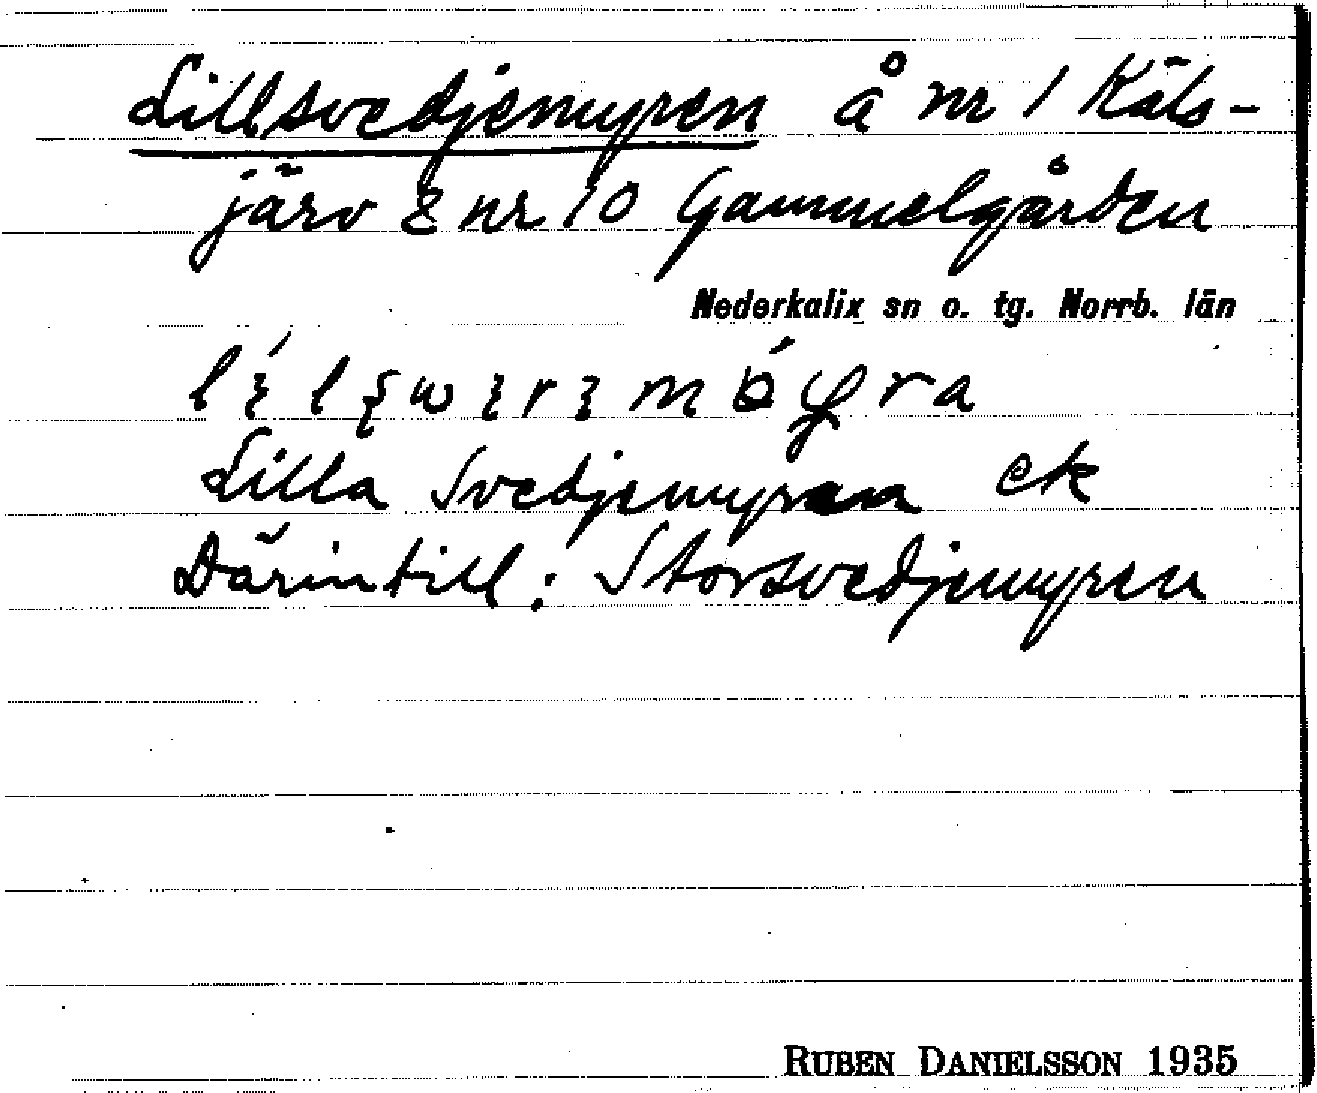 Lillsvedjemyren å nr 1 Käls-
järv & nr 10 Gammelgården
Nederkalix sn o. tg. Norrb. län
Lilla Svedjemyran ek
Därintill: Storsvedjemyren
RUBEN DANIELSSON 1935